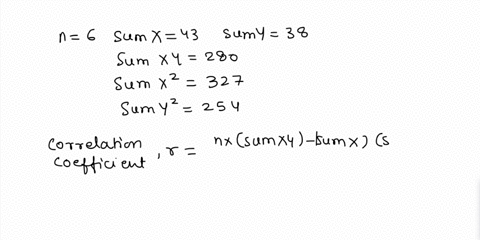 n = 6 Sum X = 43 Sum Y = 38
Sum XY = 280
Sum X² = 327
Sum Y² = 254
Correlation coefficient, r = nx(sum XY) - (sum X) (s